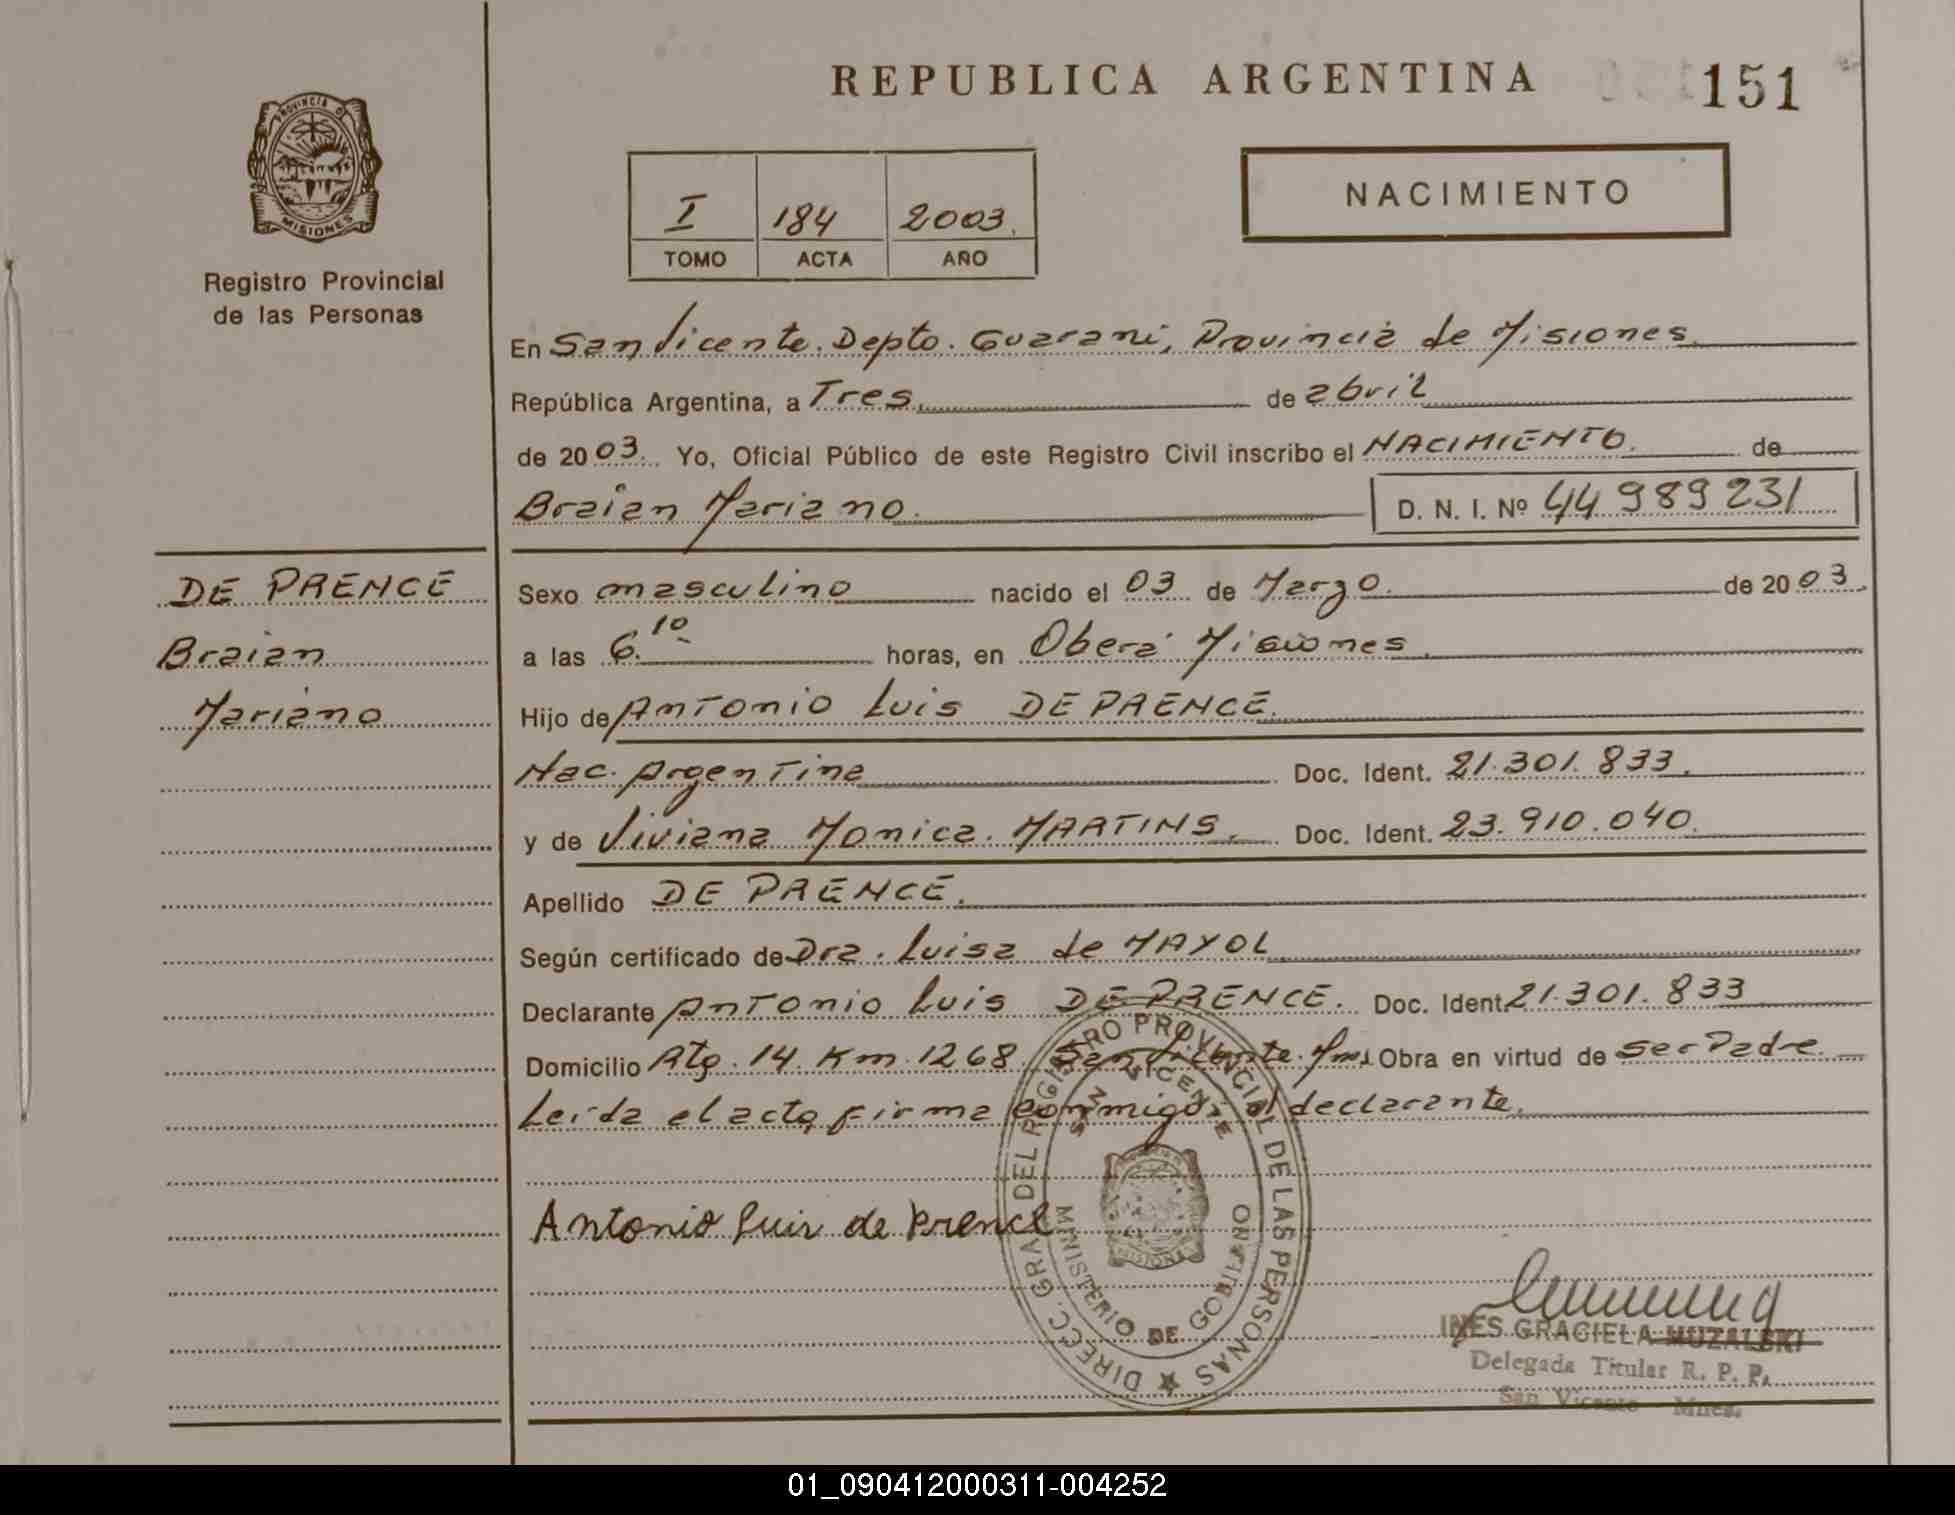 REPUBLICA ARGENTINA
151
PROVINCIA D
MISIONES
Registro Provincial
de las Personas
I 184 2003.
TOMO ACTA AÑO
NACIMIENTO
En San Vicente. Depto. Guarani, Provincia de Misiones.
República Argentina, a Tres. de abril
de 2003. Yo, Oficial Público de este Registro Civil inscribo el NACIMIENTO. de
Braian Mariano. D. N. I. Nº 44 989 231
DE PRENCE
Braian
Mariano
Sexo masculino nacido el 03 de Marzo. de 2003.
a las 6.10 horas, en Oberá Misiones.
Hijo de Antonio Luis DE PRENCE.
Nac. Argentina Doc. Ident. 21.301.833.
y de Viviana Monica. MARTINS. Doc. Ident. 23.910.040.
Apellido DE PRENCE.
Según certificado de Dra. Luisa de MAYOL
Declarante Antonio Luis DE PRENCE. Doc. Ident. 21.301.833
Domicilio Rta. 14. Km. 1268. San Vicente. Mns. Obra en virtud de ser Padre
Leída el acta, firma conmigo: el declarante.
Antonio Luis de Prence
DIRECC. GRAL DEL REGISTRO PROVINCIAL DE LAS PERSONAS
SAN VICENTE
MISIONES
MINISTERIO DE GOBIERNO
INES GRACIELA MUZALSKI
Delegada Titular R. P. P.
San Vicente Mnes.
01_090412000311-004252